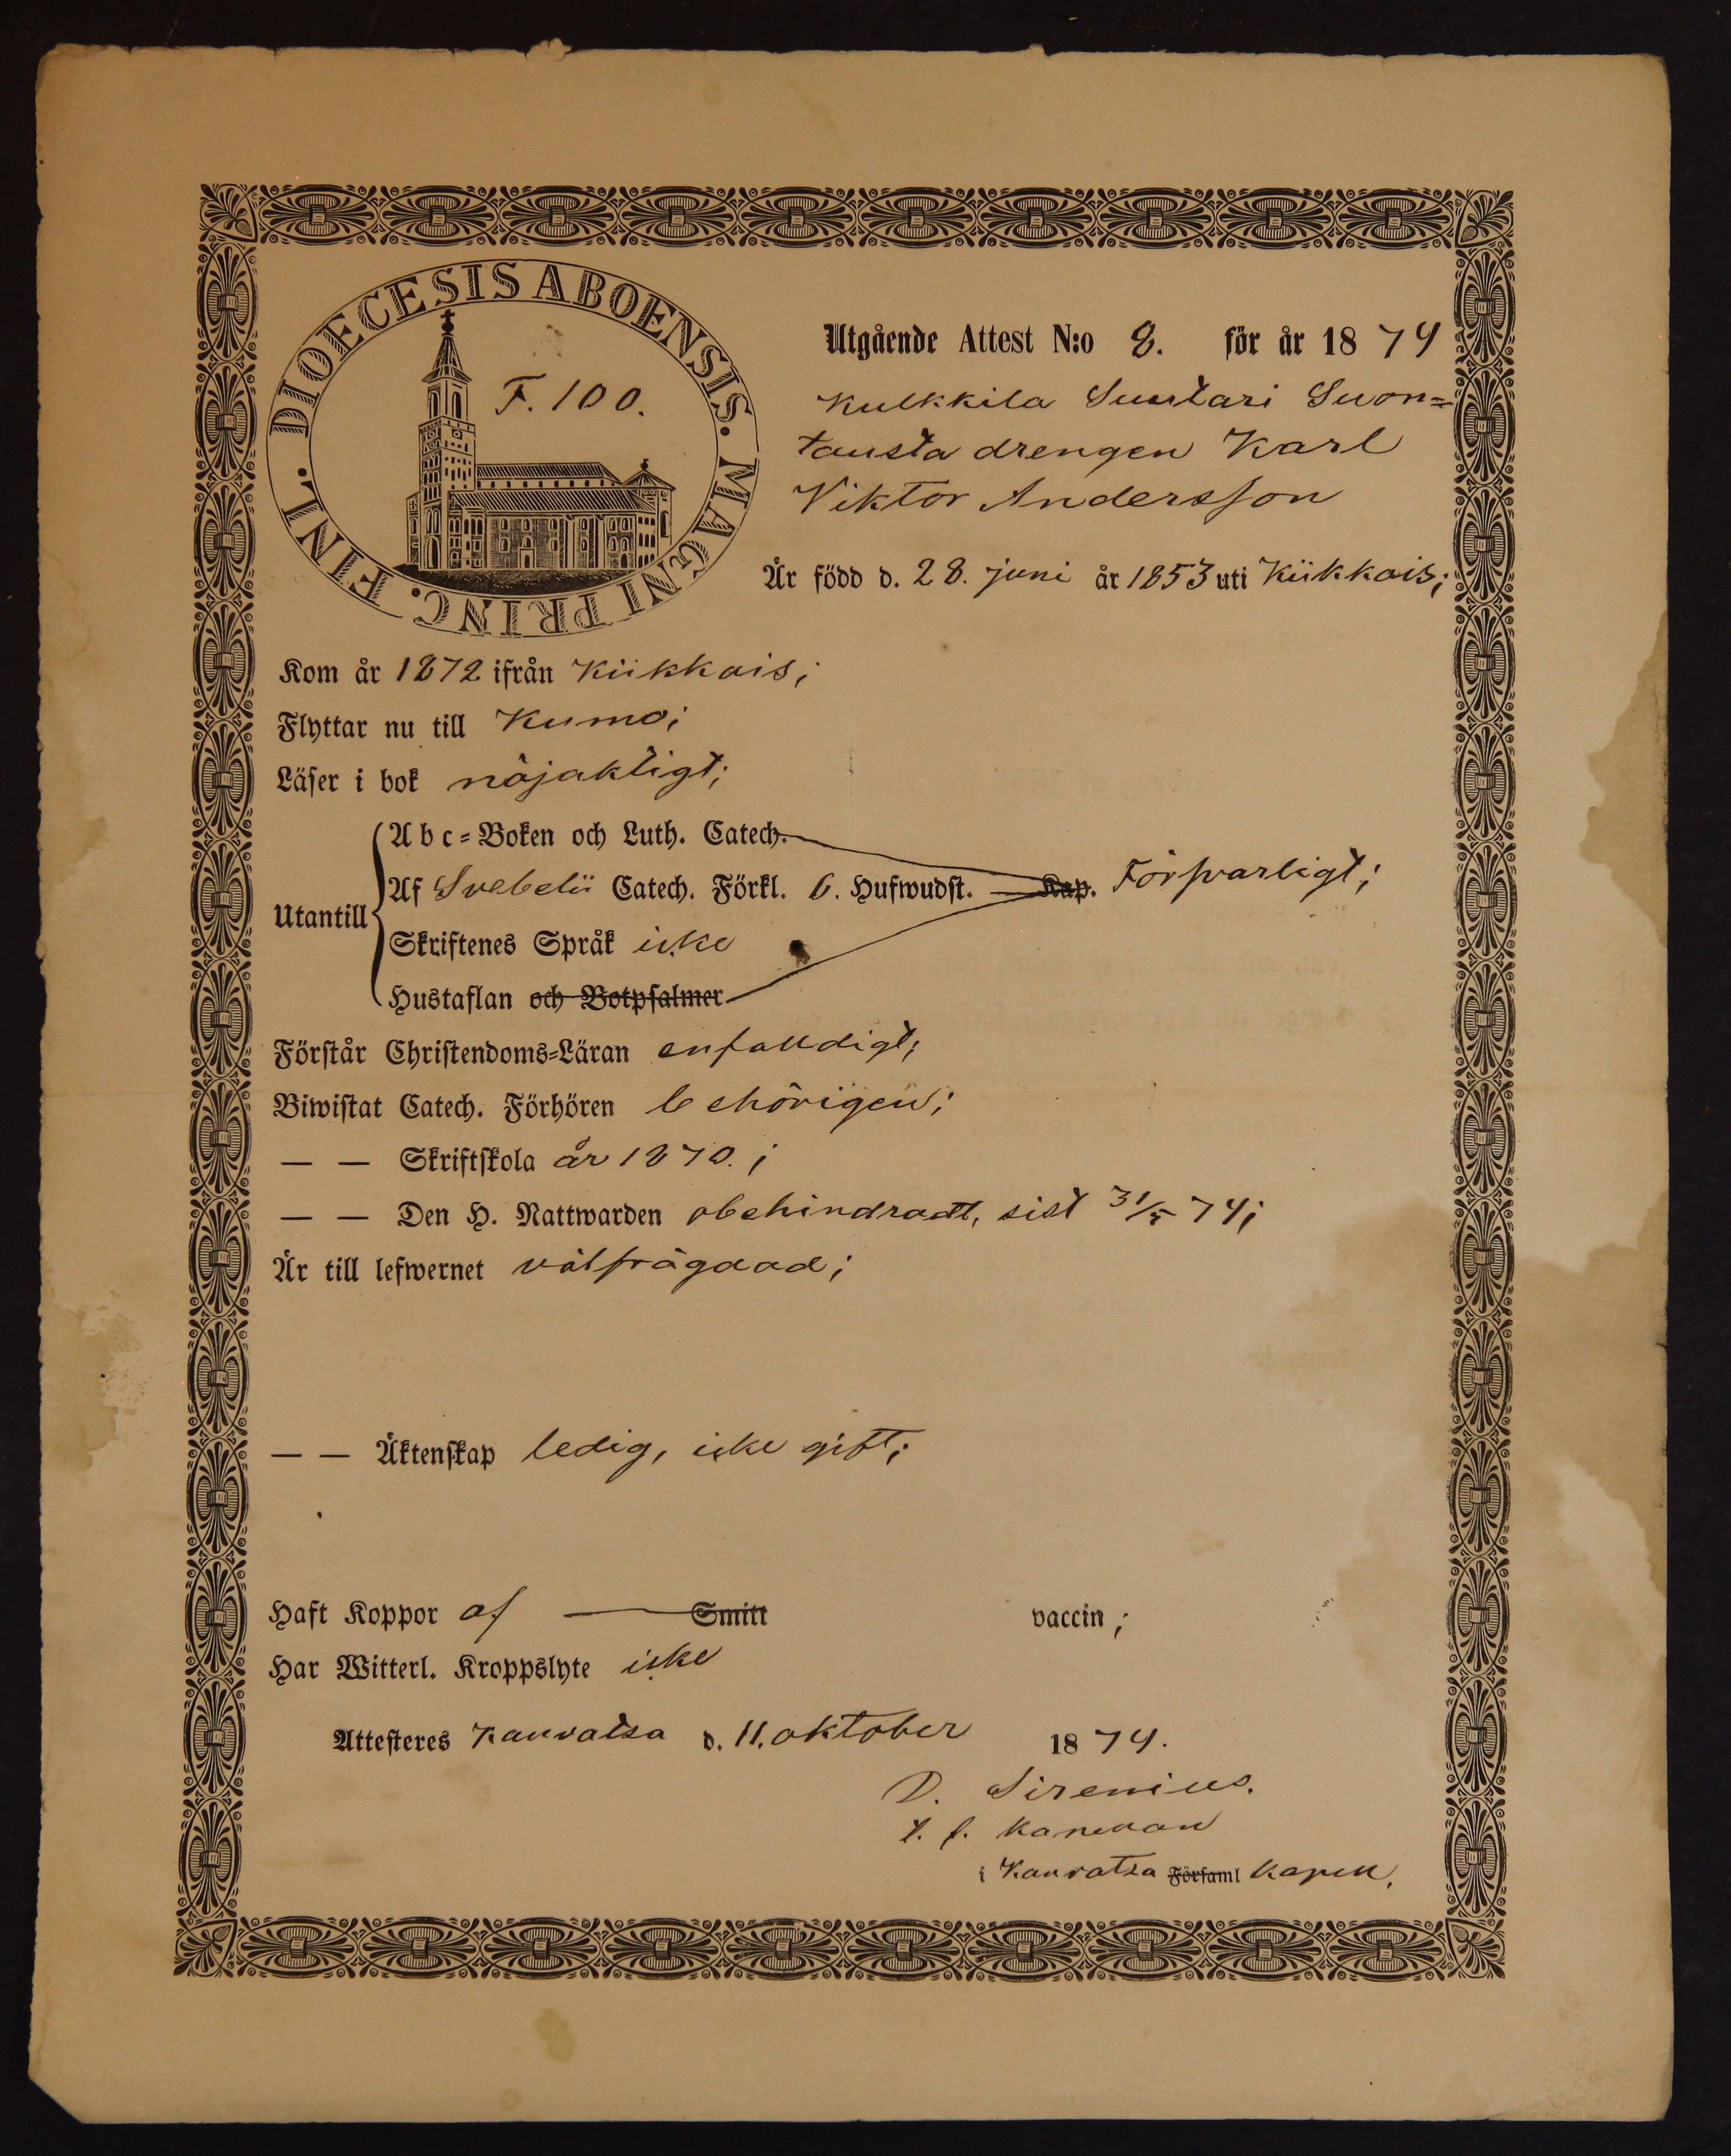 DIOECESIS ABOENSIS. MAGNI PRINC. FINL.
F. 100.
Utgående Attest N:o 8. för år 1874
Kulkkila Suutari Suon=
tausta drengen Karl
Viktor Andersson
Är född d. 28. juni år 1853 uti Kiikkois;
Kom år 1872 ifrån Kiikkois;
Flyttar nu till Kumo;
Läser i bok nöjaktigt;
Utantill
Abc=Boken och Luth. Catech.
Af Svebelii Catech. Förkl. 6. Hufwudst. Kap. Försvarligt;
Skriftenes Språk icke
Hustaflan och Botpsalmer
Förstår Christendoms=Läran enfaldigt;
Biwistat Catech. Förhören behörigen;
— — Skriftskola år 1870.;
— — Den H. Nattwarden obehindradt, sist 31/5 74;
Är till lefwernet välfrägdad;
— — Äktenskap ledig, icke gift;
Haft Koppor af — Smitt vaccin;
Har Witterl. Kroppslyte icke
Attesteres Kauvatsa d. 11. oktober 1874.
D. Sirenius.
t. f. kapellan
i Kauvatsa Församl kapell.